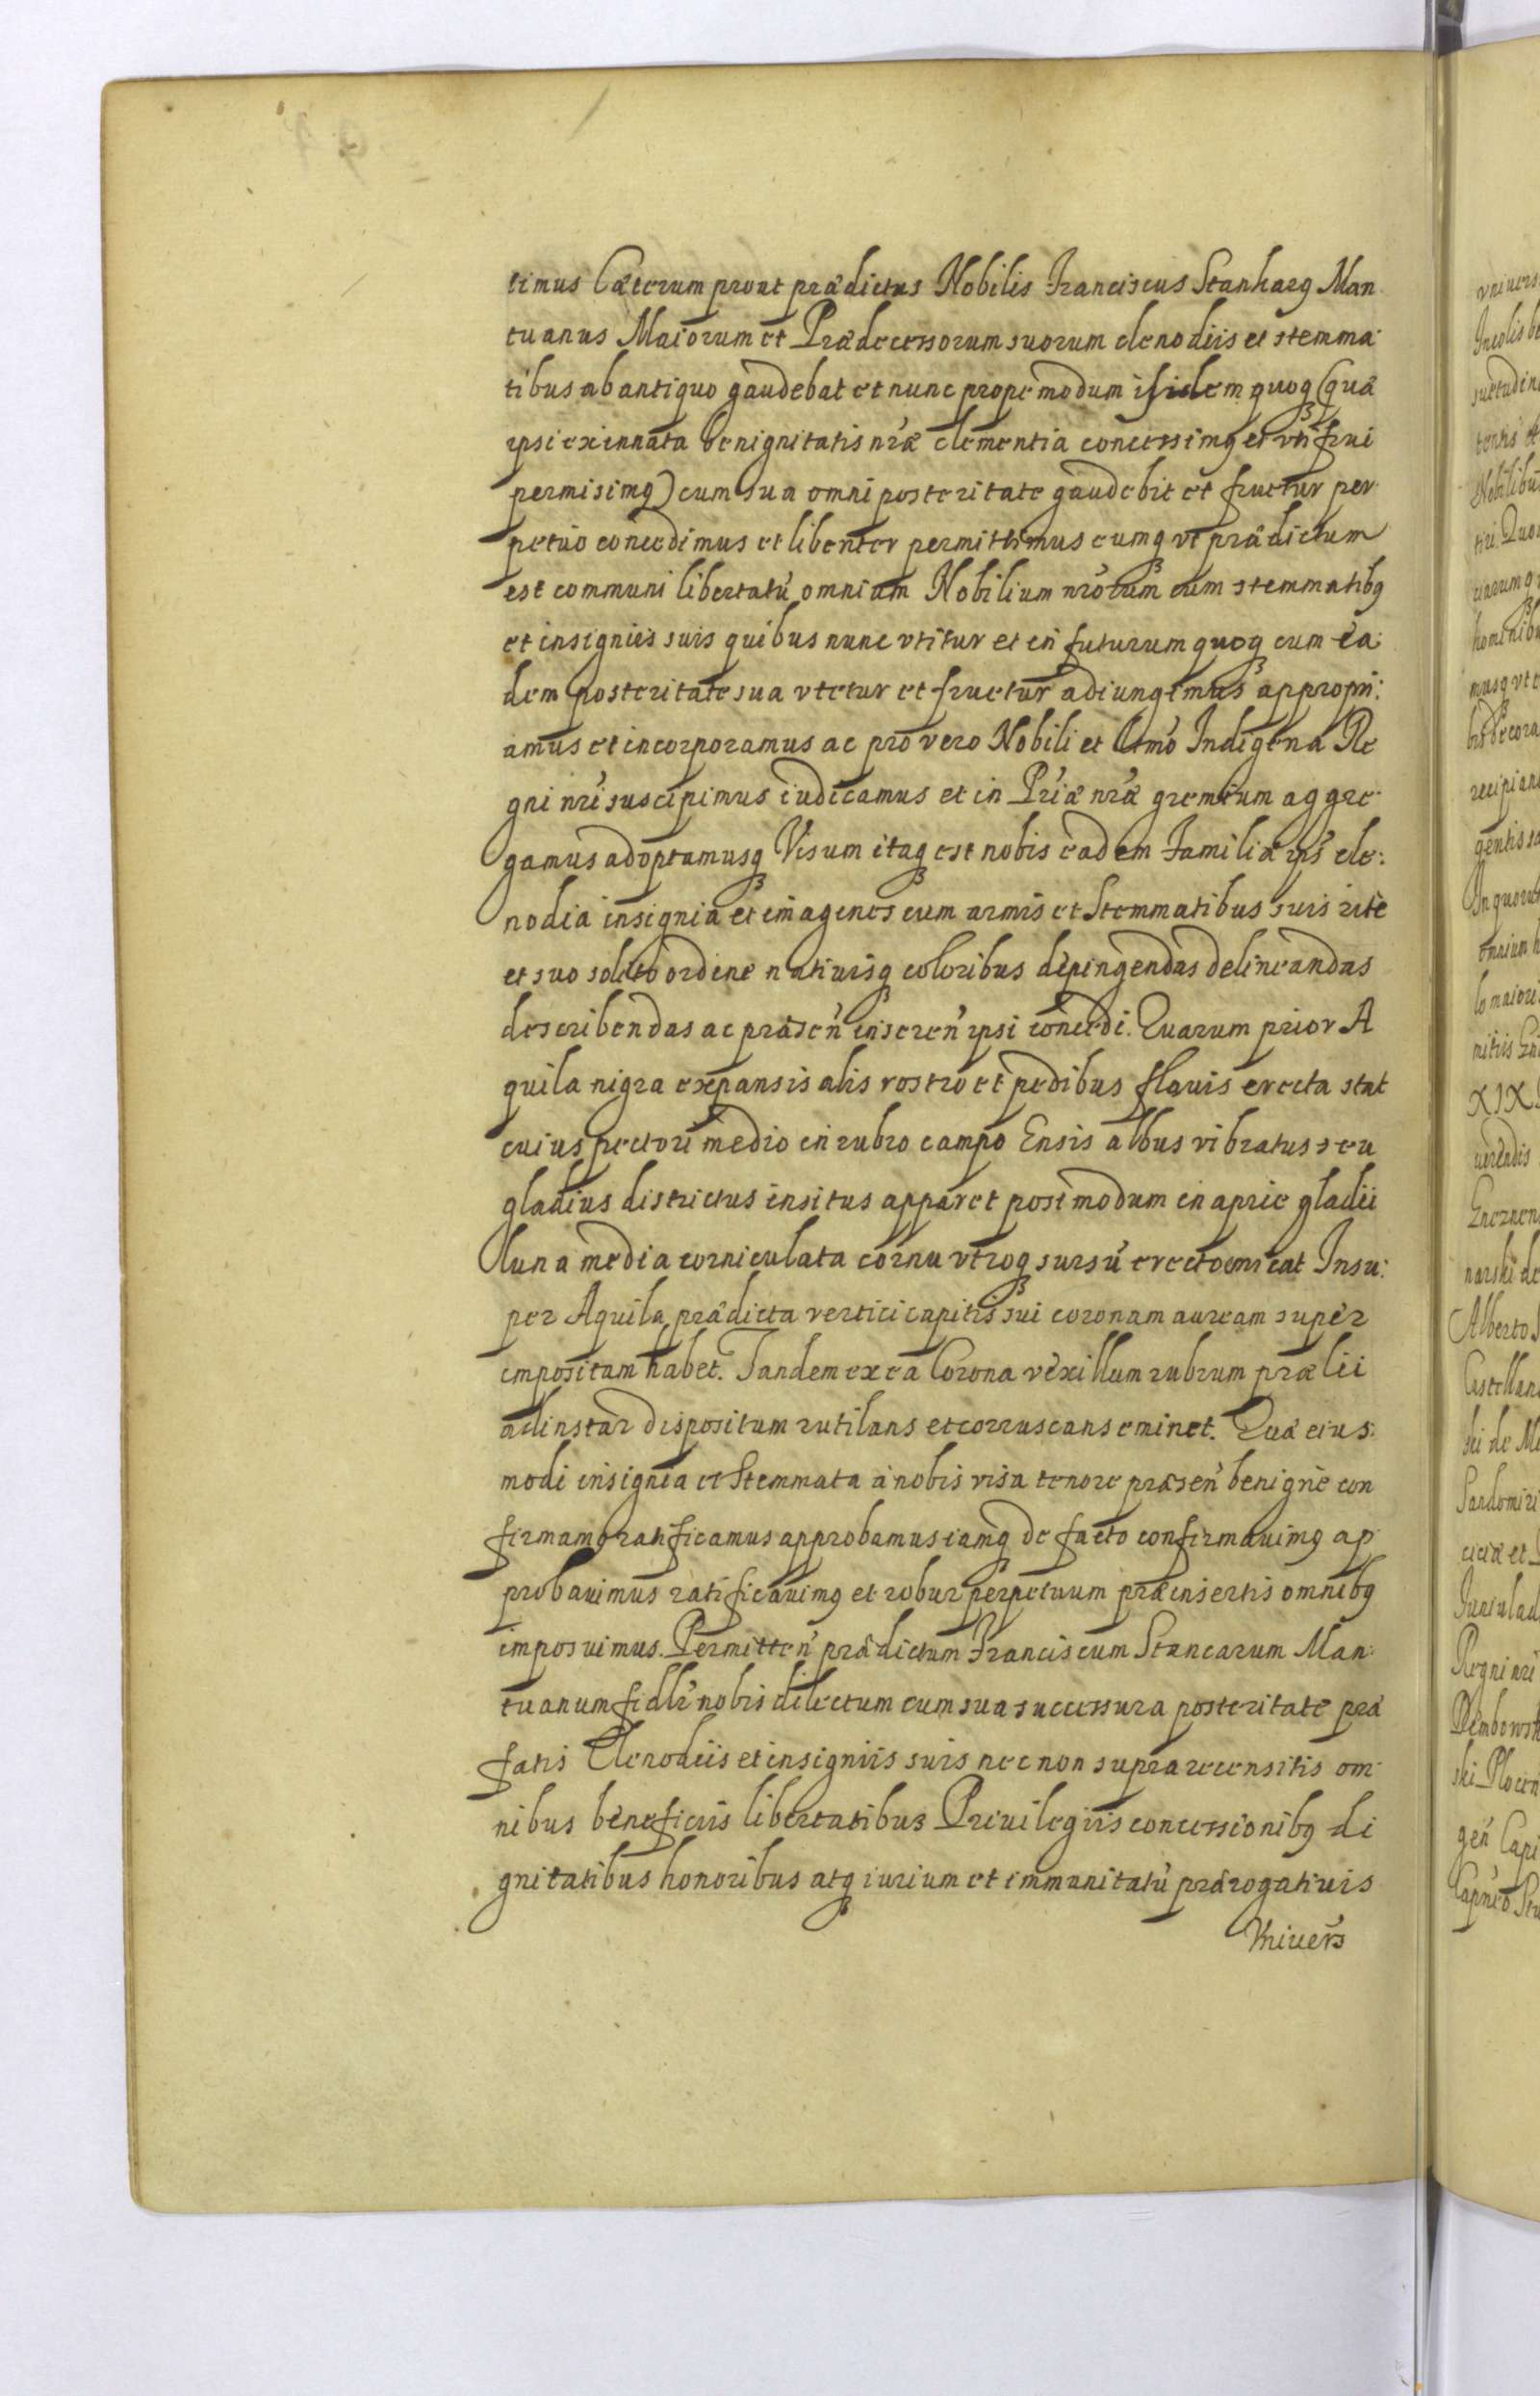 timus Cæterum prout prædictus Nobilis Franciscus Stankarg Man
tuanus Maiorum et Prædecessorum suorum clenodiis et stemma:
tibus ab antiquo gaudebat et nunc propemodum isidem quoq₃ (quâ
ipsi ex innata benignitatis nr̃æ clementia concessimꝯ et vti frui
permisimꝯ) cum sua omni posteritate gaudebit et fruetur per
petuo concedimus et libenter permittimus eumq₃ vt prædictum
est communi libertatũ omnium Nobilium nrõrum cum stemmatibꝯ
et insigniis suis quibus nunc vtitur et in futurum quoq₃ cum ea:
dem posteritate sua vtetur et fruetur adiungimus appropri:
amus et incorporamus ac pro vero Nobili et Indigena Re
gni nrĩ suscipimus iudicamus et in Prĩæ nrã gremium aggre
gamus adoptamusq₃ Visum itaq₃ est nobis eadem Familiæ ips̃ cle:
nodia insignia et imagines cum armis et Stemmatibus suis rite
et suo solito ordine natiuisq₃ coloribus depingendas delineandas
describendas ac præsen̄ inseren̄ ipsi concedi. Quarum prior A
quila nigra expansis alis rostro et pedibus flauis erecta stat
cuius pectori medio in rubro campo Ensis albus vibratus seu
gladius districtus insitus apparet postmodum in aprie gladii
luna media corniculata cornu vtroq₃ sursũ erecto emicat Insu:
per Aquila prædicta vertici capitis sui coronam auream super
impositam habet. Tandem ex ea Corona vexillum rubrum prælii
adinstar dispositum rutilans et corruscans eminet. Quæ eius:
modi insignia et Stemmata à nobis visa tenore præsen̄ benigne con
firmamꝯ ratificamus approbamus iamq₃ de facto confirmauimꝯ ap
probauimus ratificauimꝯ et robur perpetuum præinsertis omnibꝯ
imposuimus. Permitten̄ prædictum Franciscum Stancarum Man:
tuanum fidlẽ nobis dilectum cum sua successura posteritate præ
fatis Clenodiis et insigniis suis nec non supra recensitis om
nibus beneficiis libertatibus Priuilegiis concessionibꝯ di
gnitatibus honoribus atq₃ iurium et immunitatũ prærogatiuis
Vniuers̃